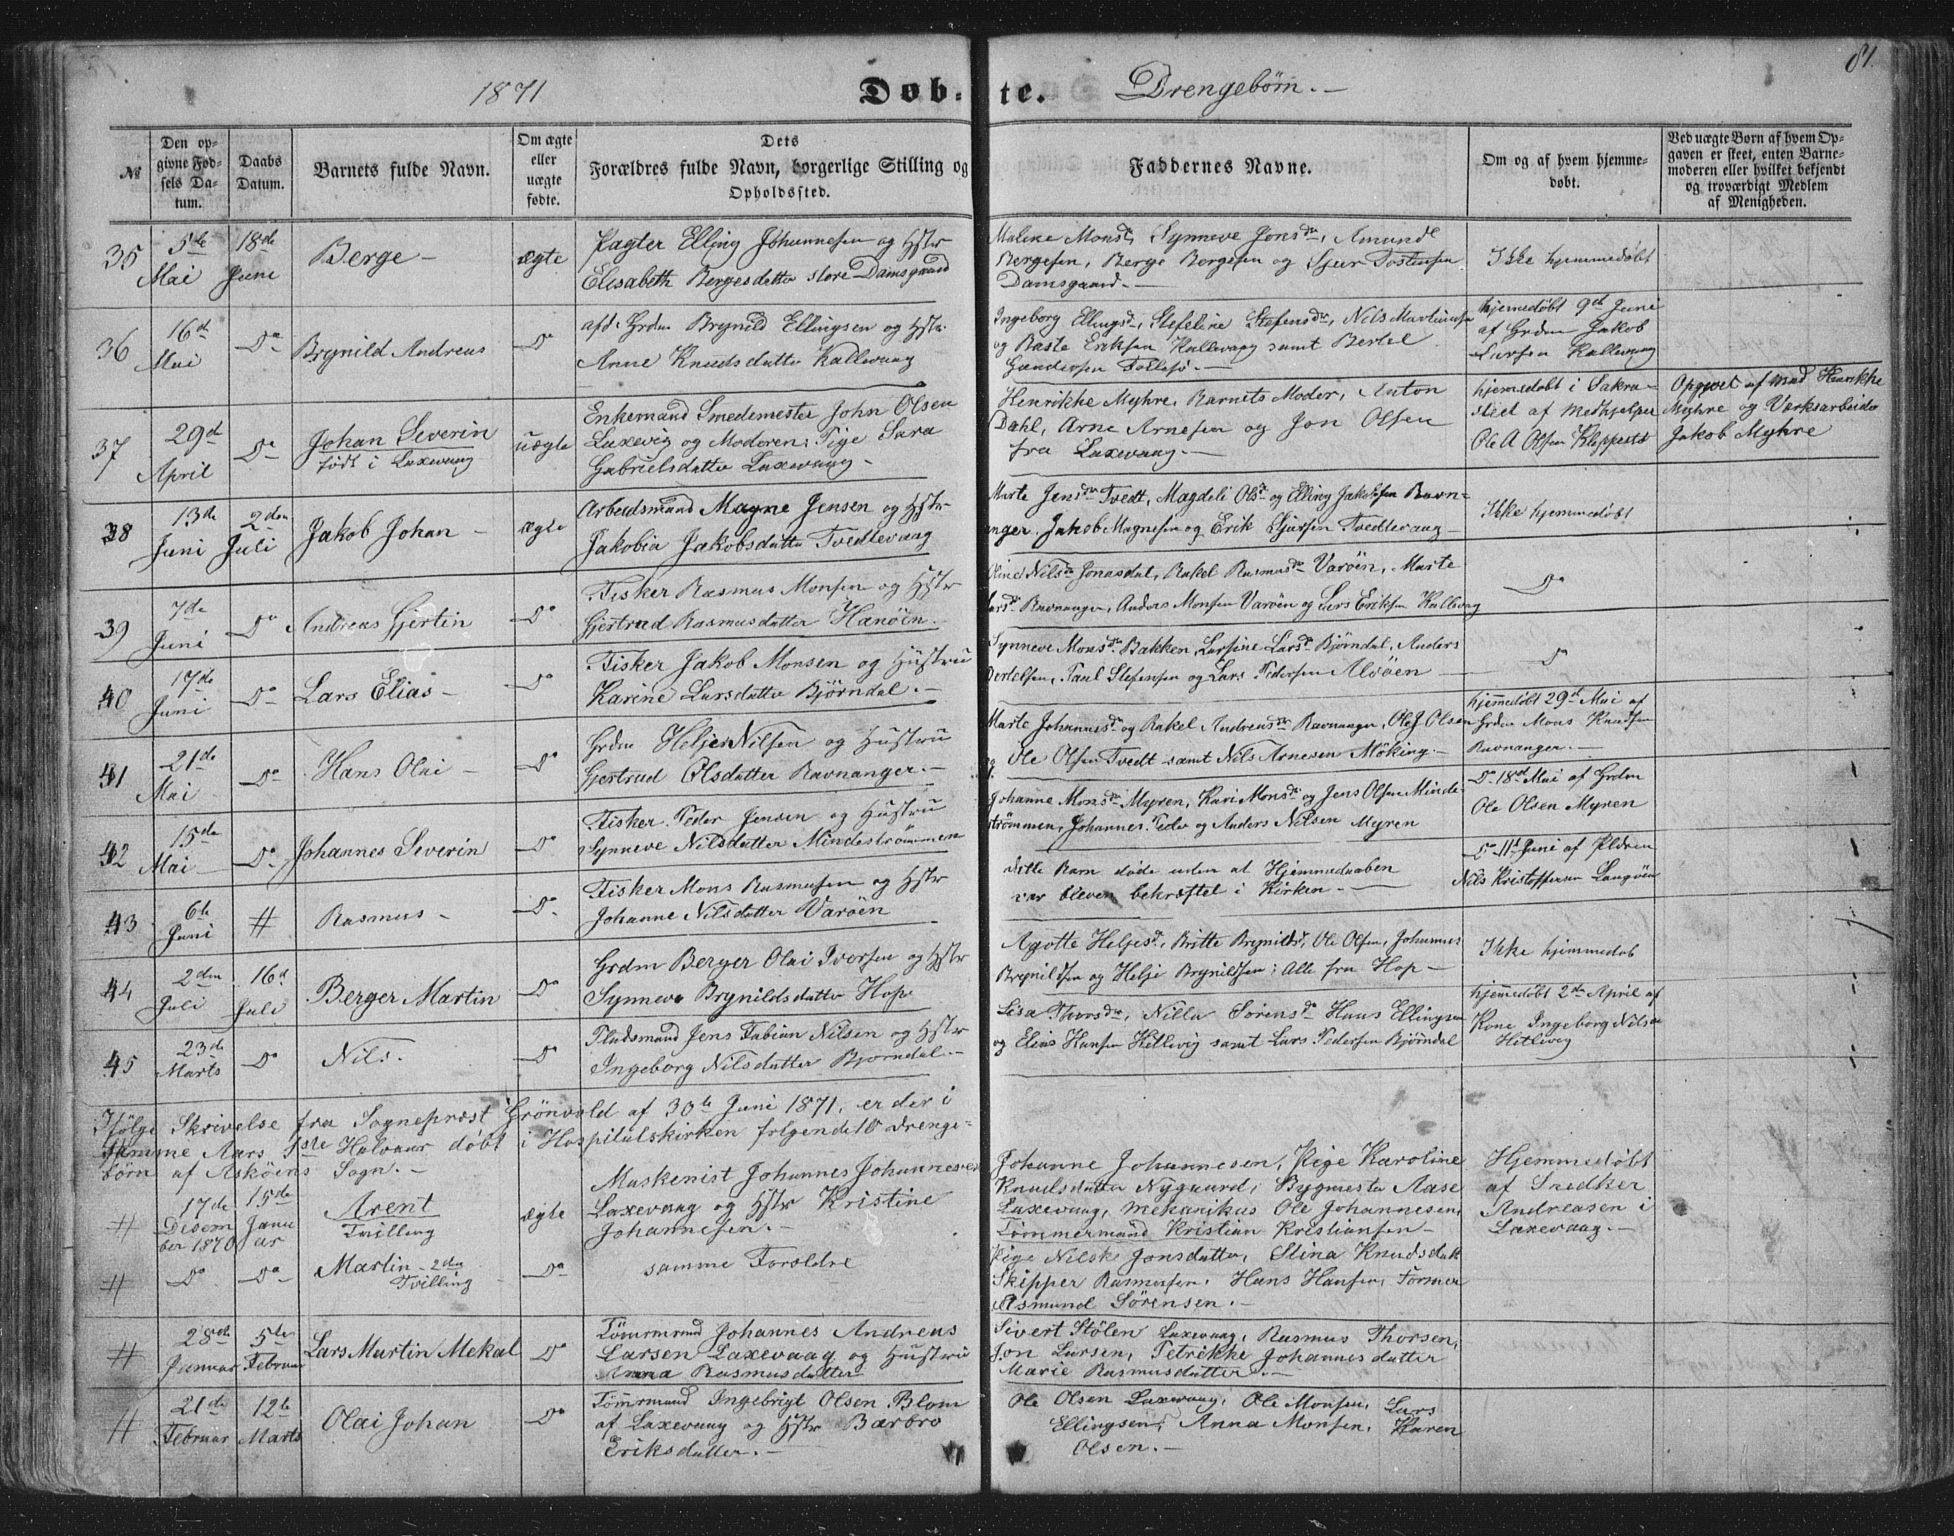 1871
Döb-te.
Drengebørn.-
81.
№
Den opgivne Fødsels Datum.
Daabs Datum.
Barnets fulde Navn.
Om ægte eller uægte fødte.
Dets Forældres fulde Navn, borgerlige Stilling og Opholdssted.
Faddernes Navne.
Om og af hvem hjemmedøbt.
Ved uægte Børn af hvem Opgaven er skeet, enten Barnemoderen eller hvilket bekjendt og troværdigt Medlem af Menigheden.
35
5te Mai
18de Juni
Berge-
ægte
Pagter Elling Johannesen og Hstr
Elisabeth Bergesdatter store Damsgaard
Malene Monsd, Synneve Jonsdr, Amund
Bergesen, Berge Bergesen og Sjur Tostensen
Damsgaard.-
Ikke hjemmedøbt
36
16d Mai
Do
Brynild Andreas
Do
afd. Grdm Brynild Ellingsen og Hstr.
Anne Knudsdatter Kallevaag
Ingeborg Ellingsd, Stefeline Stefensdr, Nils Martinsen
og Baste Eriksen Kallevaag samt Bertel
Follesø.-
hjemedøbt 9d Juni
af Grdm Jakob
Larsen Kallevaag
37
29d April
Do
Johan Severin
født i Laxevaag
uægte
Enkemand Smedemester John Olsen
Laxevig og Moderen: Pige Sara
Gabrielsdatter Laxevaag-
Henrikke Myhre, Barnets Moder, Anton
Dahl, Arne Arnesen og Jon Olsen
fra Laxevaag.-
hjemedøbt i Sakra-
steet af Medhjelper
Ole A Olsen Kleppestø
Opgivet af Mad Henrikke
Myhre og Værksarbeider
Jakob Myhre
38
13de Juni
2den Juli
Jakob Johan-
ægte
Arbeidsmand Magne Jensen og Hstr-
Jakobia Jakobsdatter Tvedtevaag
Marte Jensdr Tvedt, Magdeli Olsd og Elling Jakobsen Ravn-
anger, Jakob Magnesen og Erik Sjursen Tvedtevaag-
Ikke hjemmedøbt
39
7de Juni
Do
Andreas Gjertin
Do
Fisker Rasmus Monsen og Hstr
Gjertrud Rasmusdatter Hanöen.
Oline Nilsdr Jonasdal, Rakel Rasmusdr Varöen, Marte
Larsd. Ravnanger, Anders Monsen Varöen og Lars Eriksen Kallevag
Do
40
17de Juni
Do
Lars Elias-
Do
Fisker Jakob Monsen og Hustru
Karine Larsdatter Björndal.-
Synneve Monsdr Bakken, Larsine Larsdr Bjørndal, Anders
Bertelsen, Paul Stefensen og Lars Pedersen Alsöen-
Do
41
21de Mai
Do
Hans Olai-
Do
Grdm Heljer Nilsen og Hustru
Gjertrud Olsdatter Ravnanger.-
Marte Johannesdr og Rakel Andreasdr Ravnanger, Ole J Olsen
Ole Olsen Tvedt samt Nils Arnesen Möking.-
hjemmedøbt 29d Mai af
Grdm Mons Knudsen
Ravnanger.-
42
15de Mai
Do
Johannes Severin
Do
Fisker Peder Jensen og Hustru
Synneve Nilsdatter Mindeströmmen
Johanne Monsdr Myren, Kari Monsdr og Jens Olsen Minde-
strömmen, Johannes Peder og Anders Nilsen Myren
Do 18d Mai af Grdm
Ole Olsen Myren
43
6te Juni
#
Rasmus-
Do
Fisker Mons Rasmusen og Hstr
Johanne Nilsdatter Varöen
Dette Barn døde uden at Hjemmedaaben
var bleven bekræftet i Kirken.-
Do 11d Juni af
Nils Kristoffersen Langöen
44
2den Juli
16d Juli
Berger Martin
Do
Grdm Berger Olai Iversen og Hstr
Synneve Brynildsdatter Hop
Agotte Heljesd, Britte Brynildsd, Ole Olsen, Johannes
Brynildsen og Helje Brynildsen; Alle fra Hop-
Ikke hjemmedøb
45
23de Marts
Do
Nils.
Do
Pladsmand Jens Fabian Nilsen og Hstr
Ingeborg Nilsdatter Bjørndal.-
Lisa Thorsdr, Nilla Sörensdr Hans Ellingsen
og Elias Hansen Hetlevig samt Lars Pedersen Bjørndal
hjemmedøbt 2den April af
Kone Ingeborg Nilsen
Hetlevig
Ifølge Skrivelse fra Sogneprest Grönvold af 30te Juni 1871, er der i
samme Aars 1ste Halvaar døbt i Hospitalskirken følgende 10 Drenge-
børn af Asköens Sogn.-
#
17de Desember 1870
15de Januar
Arent
Tvilling
ægte
Maskenist Johannes Johannesen
Laxevaag og Hstr Kristine
Johannesen.-
Johanne Johannesen, Pige Karoline
Knudsdatter Nygaard, Bygmester Aase
Laxevaag, Mekanikus Ole Johannesen,
Tömmermand Kristian Kristiansen-
Hjemmedøbt
af Snedker
Andreasen i
Laxevaag.-
#
Do
Do
Martin- 2den
Tvilling
Do
samme Foreldre
Pige Nilsk Jonsdatter, Stina Knudsdatt
Skipper Rasmusen, Hans Hansen, Former
Asmund Sörensen.-
#
28de Januar
5te Februar
Lars Martin Mekal
Do
Tömrmand Johannes Andreas
Larsen Laxevaag og Hustru
Anna Rasmusdatter
Sivert Stölen Laxevaag, Rasmus Thorsen,
Jon Larsen, Petrikke Johannesdatter
Marie Rasmusdatter.-
#
21de Februar
12te Marts
Olai Johan
Do
Tömrmand Ingebrigt Olsen Blom
af Laxevaag og Hstr Barbro
Eriksdatter.-
Ole Olsen Laxevaag, Ole Monsen, Lars
Ellingsen, Anna Monsen, Karen
Olsen.-